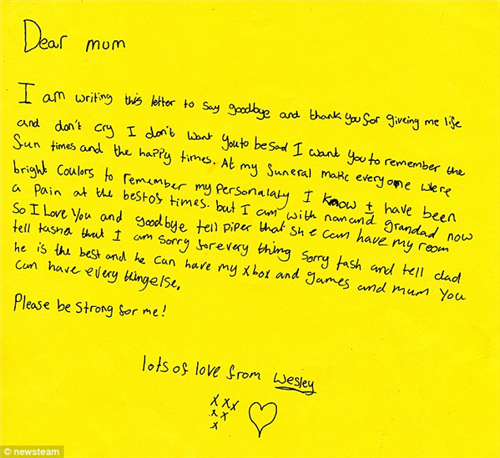 Dear mum
I am writing this letter to say goodbye and thank you for giveing me life
and don't cry I don't want you to be sad I want you to remember the
fun times and the happy times. At my funeral make everyone were
bright Coulors to remember my personalaty I know I have been
a pain at the best of times. but I am with nan and grandad now
So I Love You and goodbye tell piper that she can have my room
tell tasha that I am sorry for every thing sorry tash and tell dad
he is the best and he can have my xbox and games and mum you
can have every thing else.
Please be strong for me!
lots of love from Wesley
xxx
xx
x
© newsteam